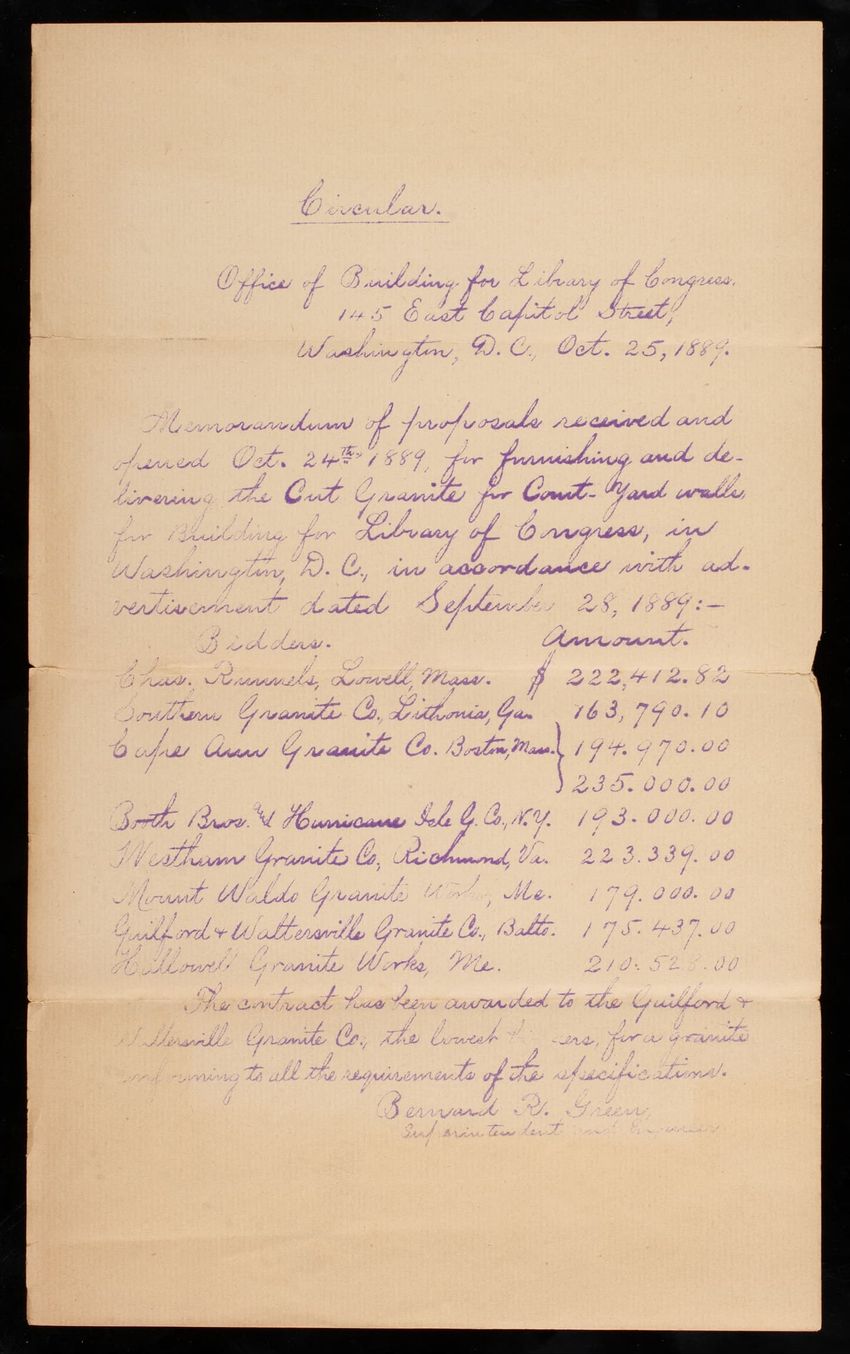 Circular.
Office of Building for Library of Congress.
145 East Capitol Street,
Washington, D. C., Oct. 25, 1889.
Memorandum of proposals received and
opened Oct. 24th 1889, for furnishing and de-
livering the Cut Granite for Court-Yard walls
for Building for Library of Congress, in
Washington, D. C., in accordance with ad-
vertisement dated September 28, 1889:-
Bidders. Amount.
Chas. Runnels, Lowell, Mass. $ 222,412.82
Southern Granite Co., Lithonia, Ga. 163,790.10
Cape Ann Granite Co. Boston, Mass. } 194.970.00
235.000.00
Booth Bros. and Hurricane Isle G. Co., N.Y. 193.000.00
Westham Granite Co, Richmond, Va. 223.339.00
Mount Waldo Granite Works, Me. 179.000.00
Guilford & Waltersville Granite Co., Balto. 175.437.00
Hallowell Granite Works, Me. 210.528.00
The contract has been awarded to the Guilford &
Waltersville Granite Co., the lowest for a granite
conforming to all the requirements of the specifications.
Bernard R. Green,
Superintendent and Engineer